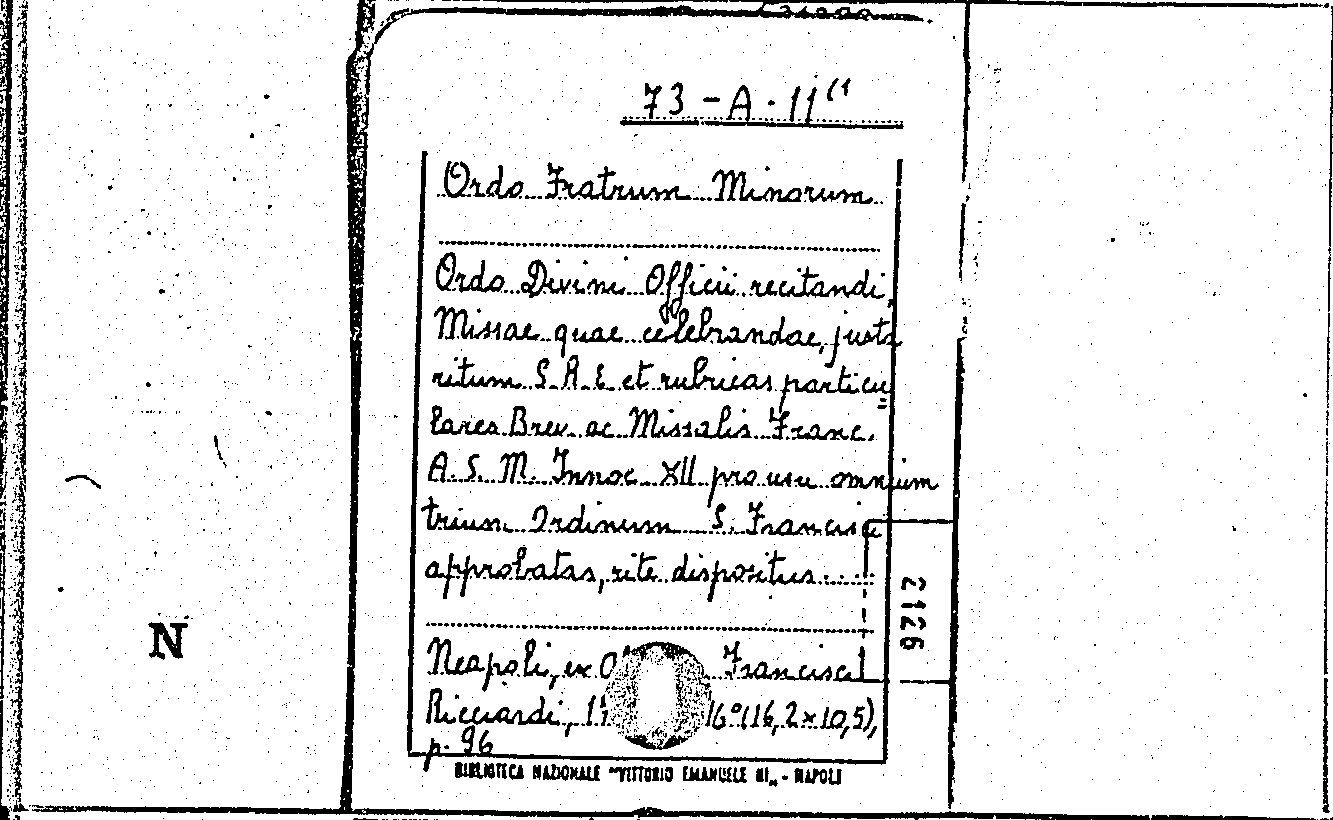 73-A-11⁽¹
Ordo Fratrum Minorum
Ordo Divini Officii recitandi,
Missae quae celebrandae, justa
ritum S. R. E. et rubricas particu=
lares Brev. ac Missalis Franc.
A. S. M. Innoc XII pro usu omnium
trium Ordinum S. Francisci
approbatas, rite dispositus.....
Neapoli, ex Francisci
Ricciardi, 16°(16,2×10,5),
p. 96
BIBLIOTECA NAZIONALE "VITTORIO EMANUELE III„ - NAPOLI
2126
N